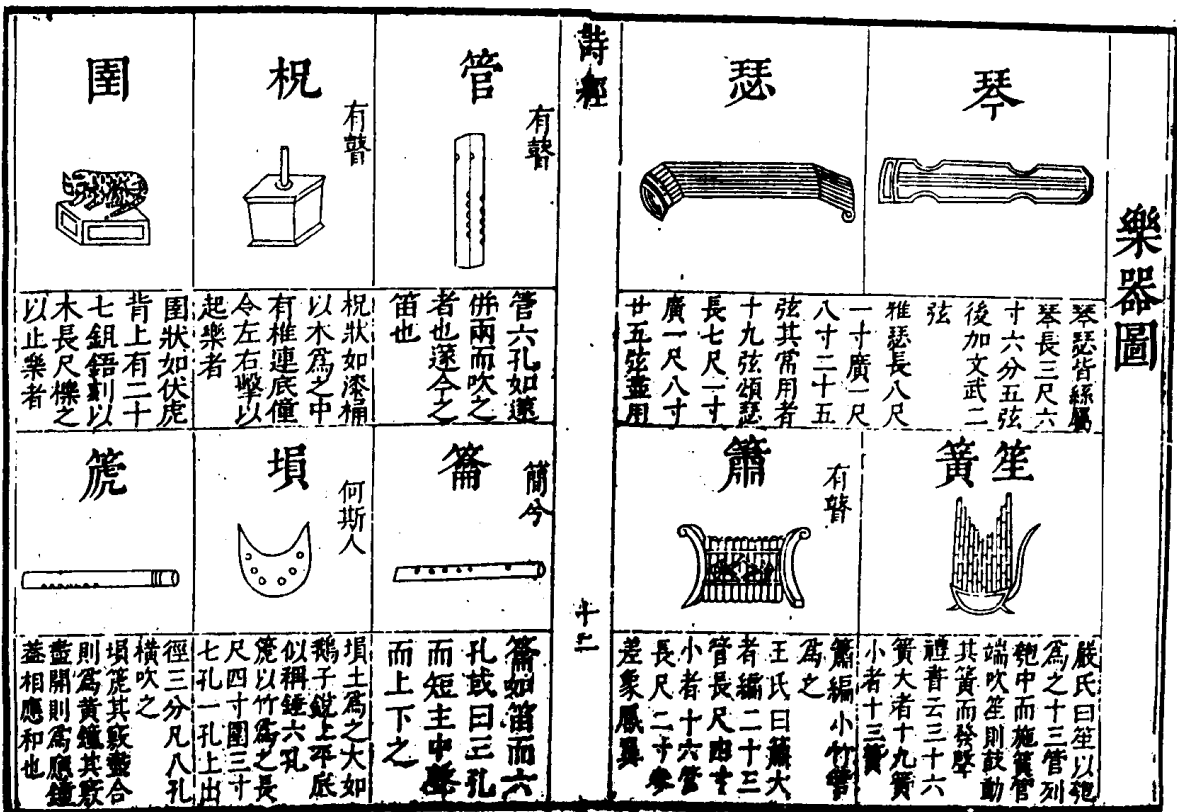 樂器圖
琴
琴瑟皆絲屬
琴長三尺六
寸六分五弦
後加文武二
弦
瑟
雅瑟長八尺
一寸廣一尺
八寸二十五
弦其常用者
十九弦頌瑟
長七尺二寸
廣一尺八寸
廿五弦盡用
笙簧
嚴氏曰笙以匏
爲之十三管列
匏中而施簧管
端吹笙則鼓動
其簧而發聲
禮書云三十六
簧大者十九簧
小者十三簧
簫
有瞽
簫編小竹管
爲之
王氏曰簫大
者編二十三
管長尺四寸
小者十六管
長尺二寸參
差象鳳翼
詩經
管
有瞽
管六孔如篴
併兩而吹之
者也篴今之
笛也
柷
有瞽
柷狀如漆桶
以木爲之中
有椎連底僮
令左右擊以
起樂者
圉
圉狀如伏虎
背上有二十
七鉏鋙刻以
木長尺櫟之
以止樂者
籥
簡兮
籥如笛而六
孔或曰三孔
而短主中聲
而上下之
塤
何斯人
塤土爲之大如
鵝子銳上平底
似稱錘六孔
篪
篪以竹爲之長
尺四寸圍三寸
七孔一孔上出
徑三分凡八孔
橫吹之
塤篪其竅盡合
則爲黄鐘其竅
盡開則爲應鐘
葢相應和也